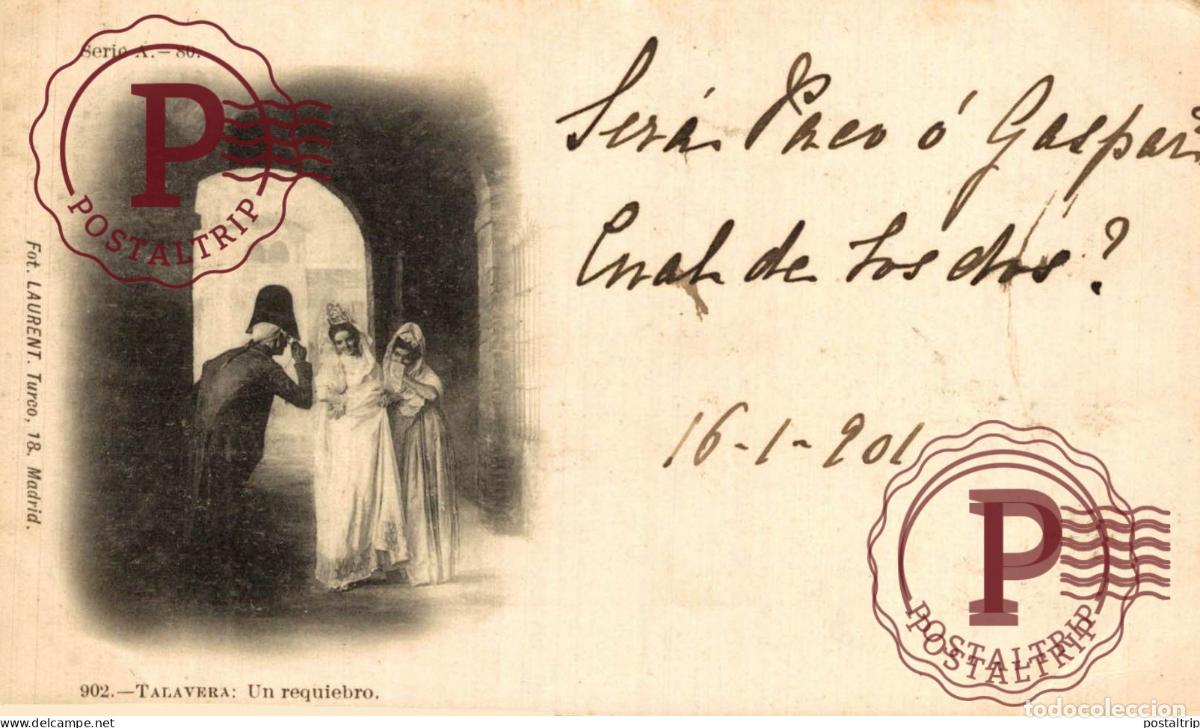 Serie A.—80.
Será Paco ó Gaspar
Cual de los dos?
16-1-901
Fot. LAURENT. Turco, 18. Madrid.
902.—TALAVERA: Un requiebro.
P
POSTALTRIP
P
POSTALTRIP
POSTALTRIP
todocoleccion
www.todocoleccion.net
postaltrip